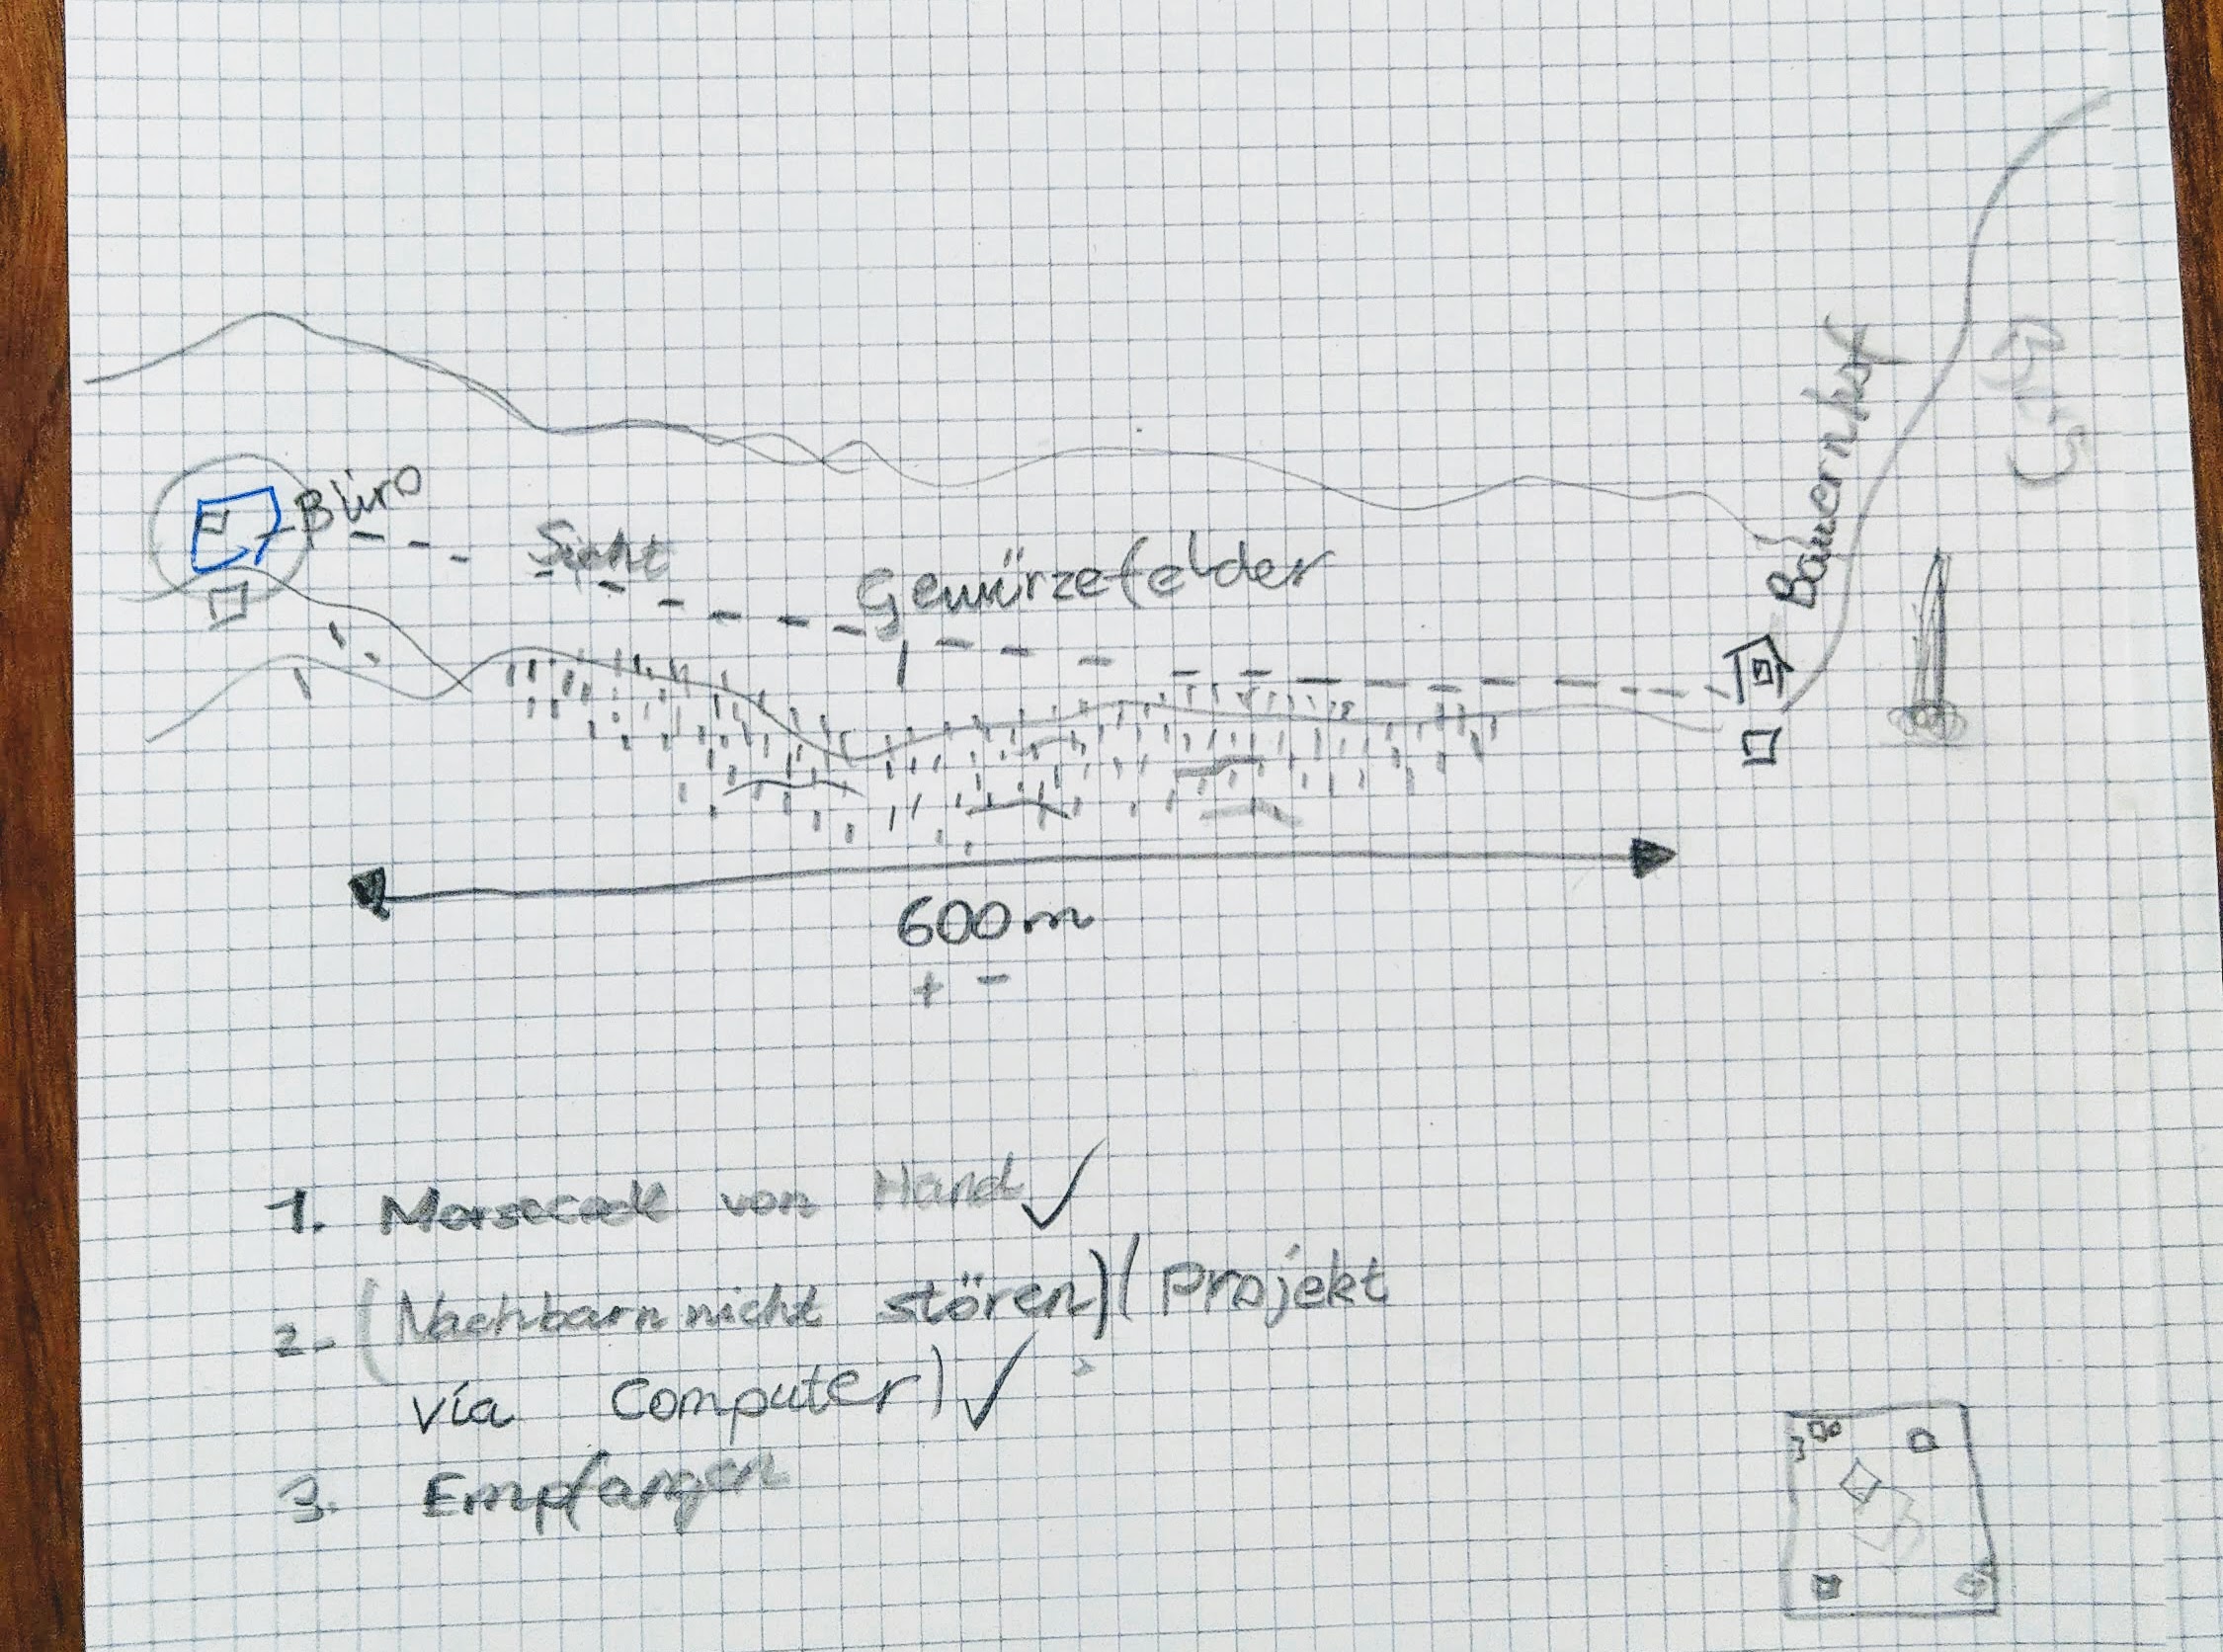 Büro
Sicht
Gewürzefelder
Bauernhof
600m
+ -
1. Morsecode von Hand ✓
2. (Nachbarn nicht stören) (Projekt
via Computer) ✓
3. Empfangen